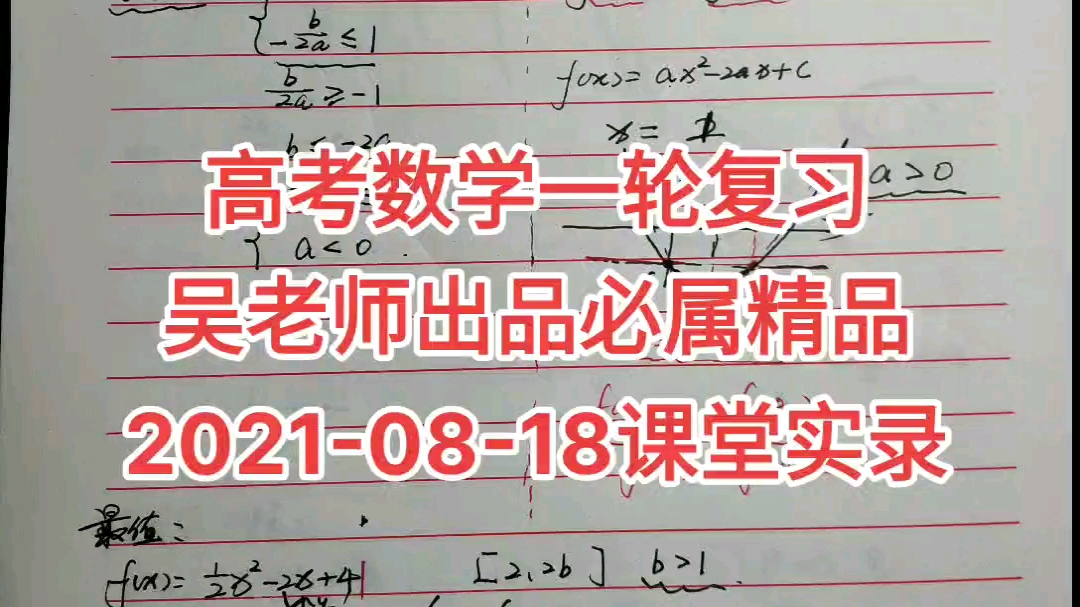 -b/2a ≤ 1
b/2a ≥ -1
f(x)= ax²-2ax+c
x= 1
a>0
高考数学一轮复习
a<0.
吴老师出品必属精品
2021-08-18课堂实录
最值:
f(x)= 1/2x²-2x+4 [2,2b] b>1